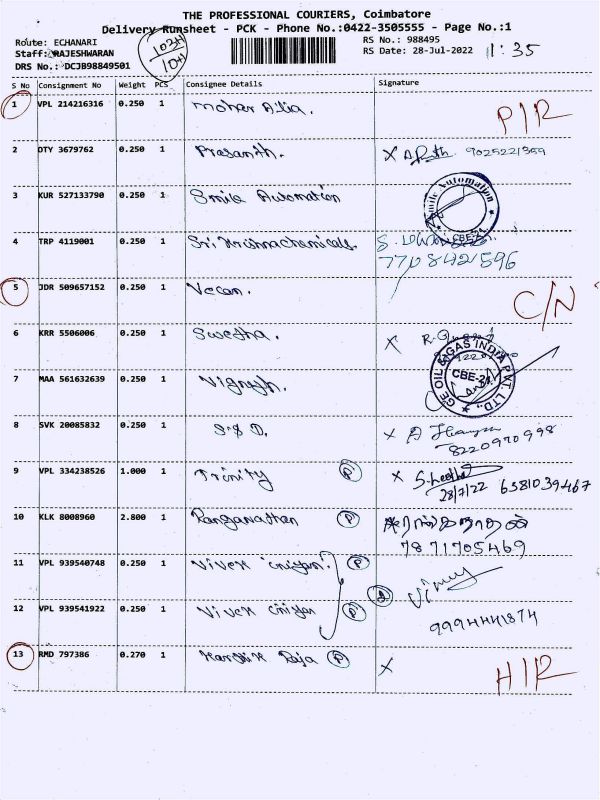 THE PROFESSIONAL COURIERS, Coimbatore
Delivery Runsheet - PCK - Phone No.:0422-3505555 - Page No.:1
Route: ECHANARI
Staff: RAJESHWARAN
DRS No.: DCJB98849501
102H
10H
RS No.: 988495
RS Date: 28-Jul-2022
1:35
S No Consignment No Weight PCS Consignee Details Signature
1 VPL 214216316 0.250 1 P/R
2 DTY 3679762 0.250 1 Prasanth. X 9025221359
3 KUR 527133790 0.250 1 Smile Automation
Smile Automation
CBE-21
4 TRP 4119001 0.250 1 Sri Krishnachemicals. S.
7708421596
5 JDR 509657152 0.250 1 Vecan. C/N
6 KRR 5506006 0.250 1 Swetha. X
GE OIL & GAS INDIA PVT. LTD.,
CBE-21
7 MAA 561632639 0.250 1 Vignesh.
8 SVK 20085832 0.250 1 X
8220970998
9 VPL 334238526 1.000 1 Trinity P X
28/7/22 6381039467
10 KLK 8008960 2.800 1 Ranganathan P அரங்கநாதன்
7871705469
11 VPL 939540748 0.250 1 Vivek iniyan P
12 VPL 939541922 0.250 1 Vivek iniyan P
9994441874
13 RMD 797386 0.270 1 Karthik Raja P X H/R